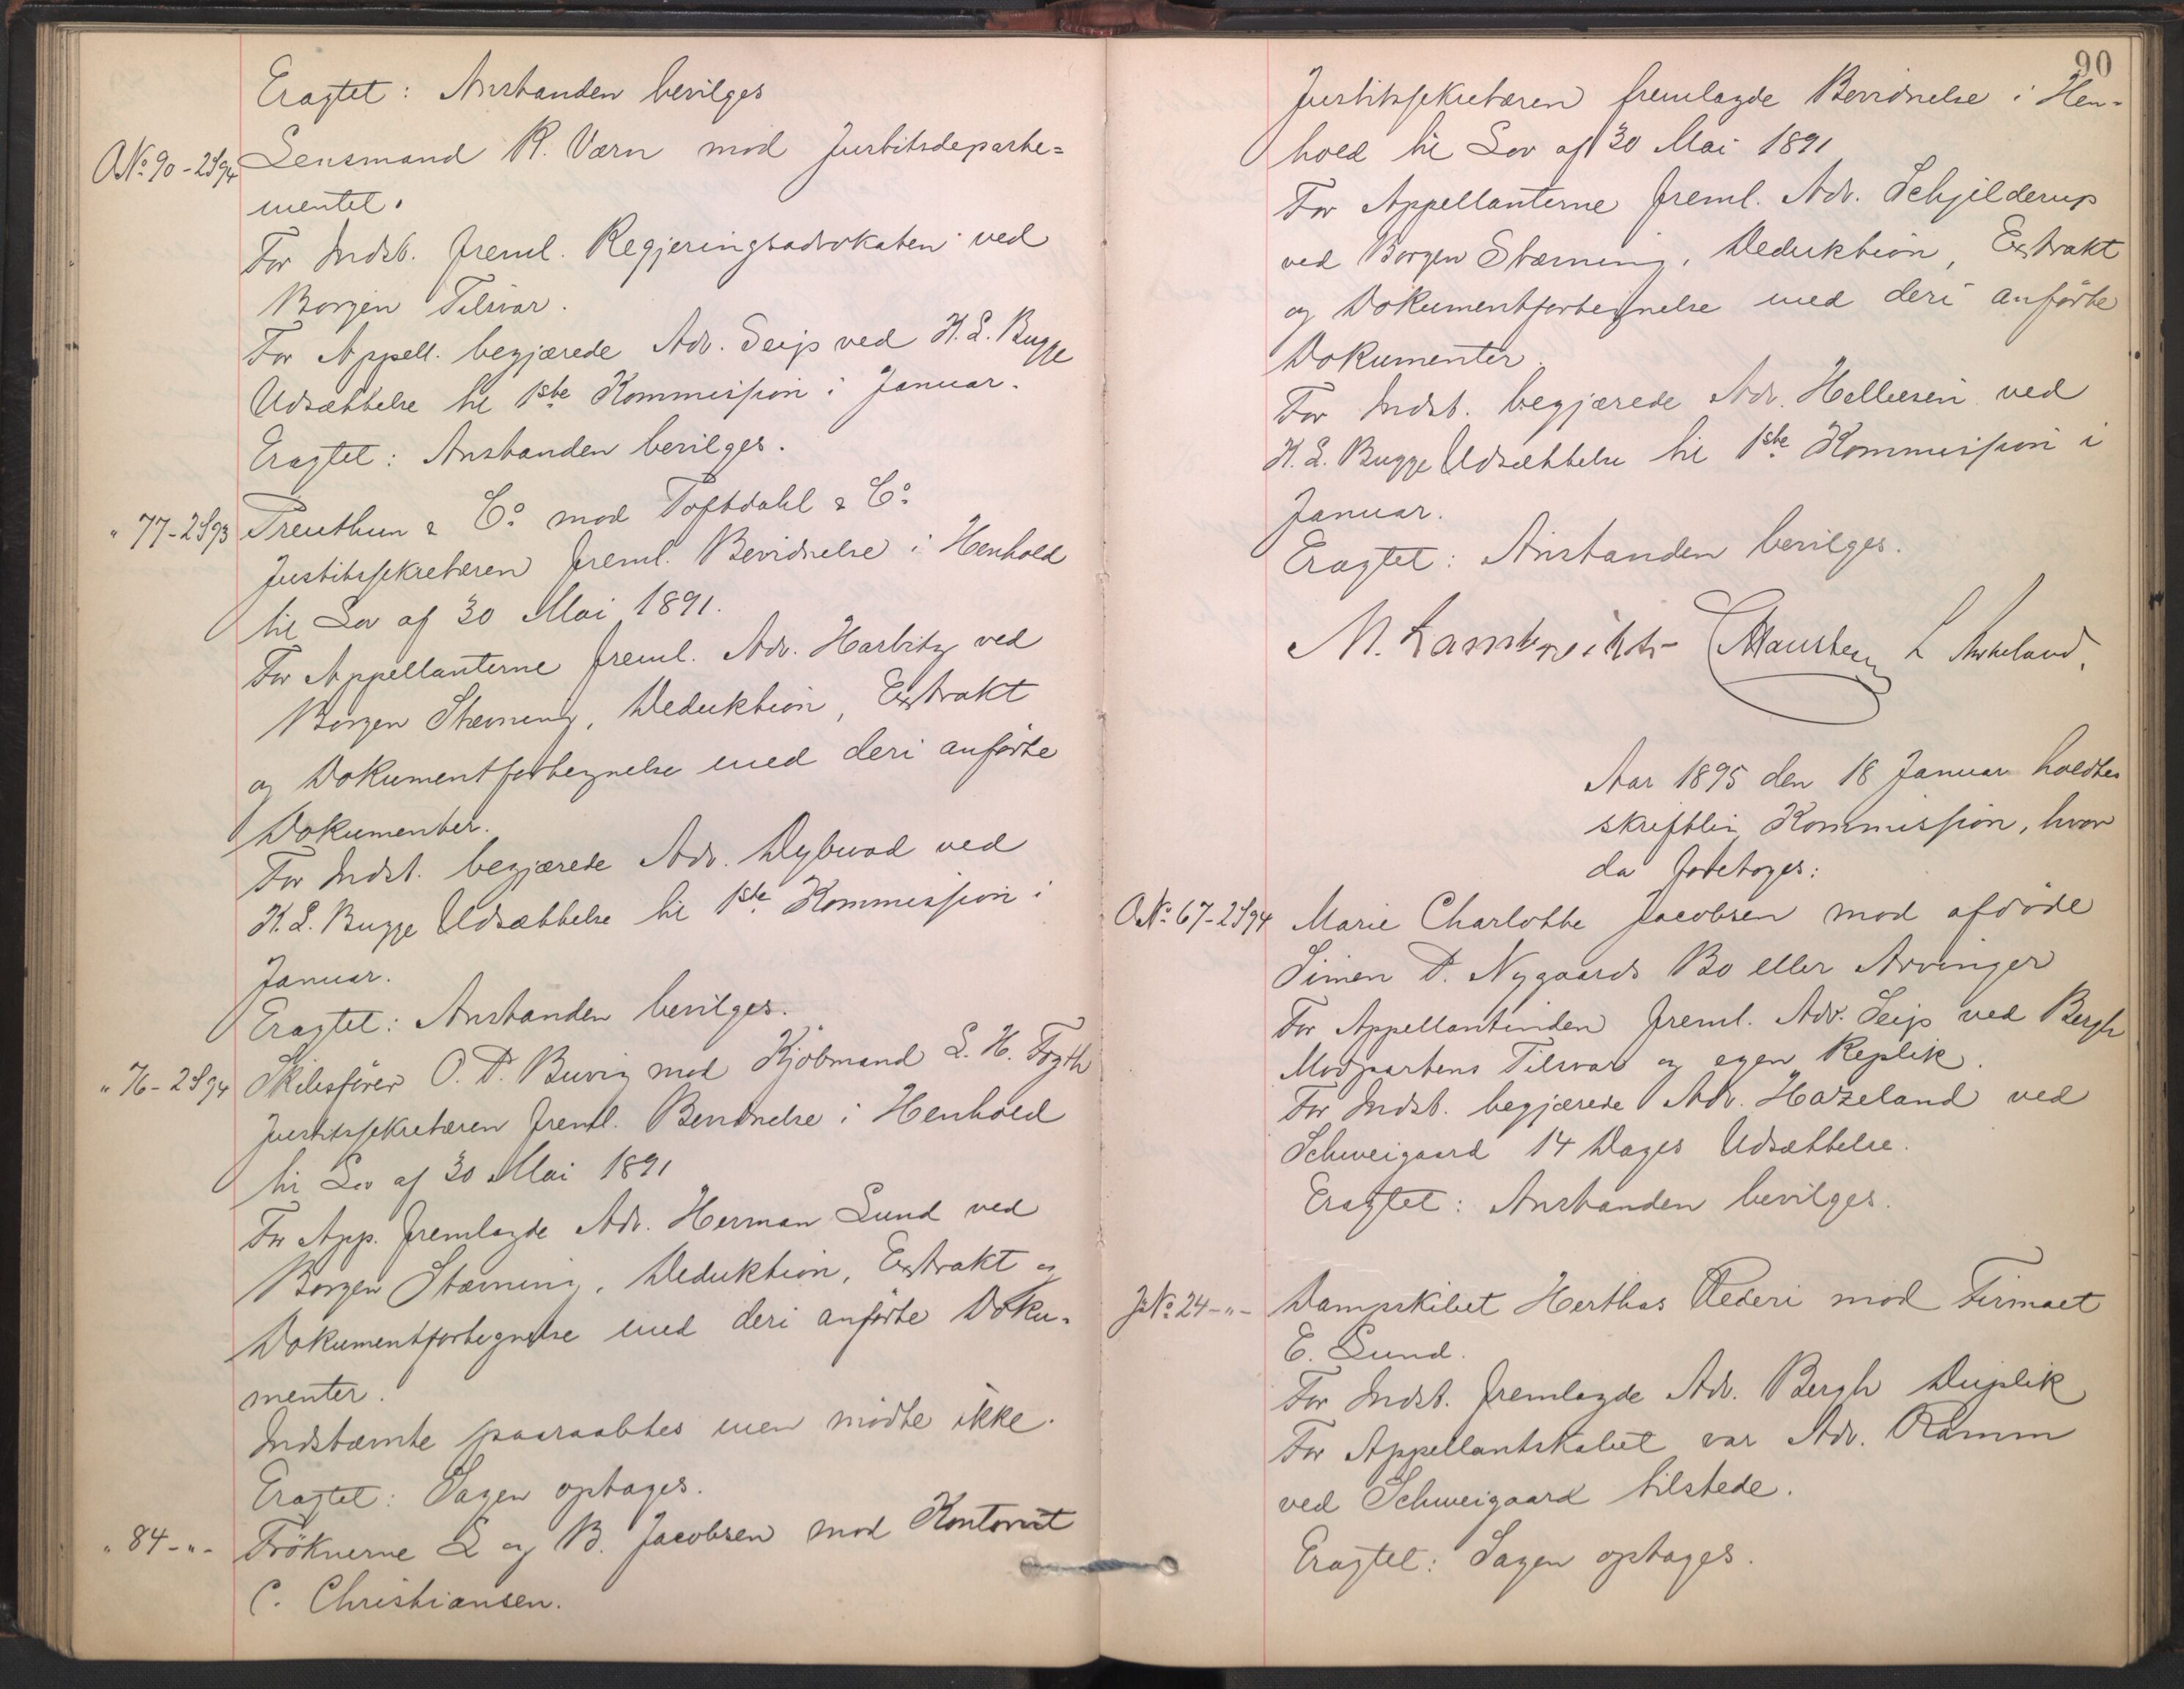 Eragtet: Anstanden bevilges
ANo. 90 - 2S94 Lensmand R. Værn mod Justitsdeparte=
mentet.
For Indst. freml. Regjeringsadvokaten ved
Borgen Tilsvar.
For Appell. begjærede Adv. Seip ved K. L. Bugge
Udsættelse til 1ste Kommission i Januar.
Eragtet: Anstanden bevilges.
" 77 - 2S93 Treuthun & Co. mod Toftdahl & Co.
Justitssekretæren freml. Bevidnelse i Henhold
til Lov af 30 Mai 1891.
For Appellanterne freml. Adv. Harbitz ved
Borgen Stævning, Deduktion, Extrakt
og Dokumentfortegnelse med deri anførte
Dokumenter.
For Indst. begjærede Adv. Dybwad ved
K. L. Bugge Udsættelse til 1ste Kommission i
Januar.
Eragtet: Anstanden bevilges.
" 76 - 2S94 Skibsfører O. T. Buvig mod Kjøbmand L. H. Fogth
Justitssekretæren freml. Bevidnelse i Henhold
til Lov af 30 Mai 1891
For App. fremlagde Adv. Herman Lund ved
Borgen Stævning, Deduktion, Extrakt og
Dokumentfortegnelse med deri anførte Doku=
menter.
Indstævnte paaraabtes men mødte ikke.
Eragtet: Sagen optages.
" 84 - " - Frøknerne L og B. Jacobsen mod Kontorist
C. Christiansen.
90
Justitssekretæren fremlagde Bevidnelse i Hen=
hold til Lov af 30 Mai 1891
For Appellanterne freml. Adv. Schjelderup
ved Borgen Stævning, Deduktion, Extrakt
og Dokumentfortegnelse med deri anførte
Dokumenter.
For Indst. begjærede Adv. Helliesen ved
K. L. Bugge Udsættelse til 1ste Kommission i
Januar.
Eragtet: Anstanden bevilges.
M. Lambrechts L Aubeland.
Aar 1895 den 18 Januar holdtes
skriftlig Kommission, hvor
da foretoges:
ANo. 67 - 2S94 Marie Charlotte Jacobsen mod afdøde
Simen T. Nygaards Bo eller Arvinger
For Appellantinden freml. Adv. Seip ved Bergh
Modpartens Tilsvar og egen Replik.
For Indst. begjærede Adv. Hazeland ved
Schweigaard 14 Dages Udsættelse.
Eragtet: Anstanden bevilges.
JNo. 24 - " - Dampskibet Herthas Rederi mod Firmaet
E. Lund.
For Indst. fremlagde Adv. Bergh Duplik
For Appellantskabet var Adv. Ramm
ved Schweigaard tilstede.
Eragtet: Sagen optages.